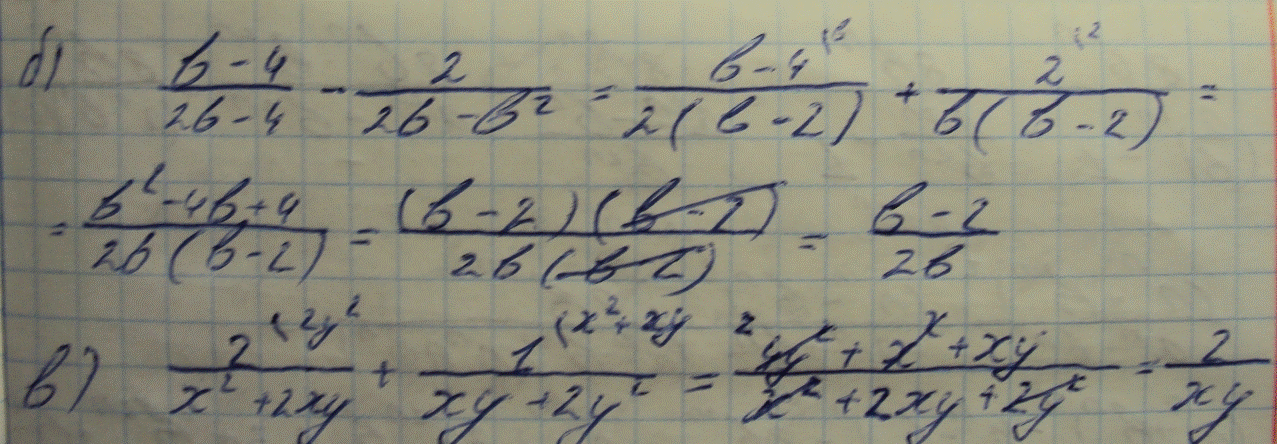 б) (b-4)/(2b-4) - 2/(2b-b²) = (b-4)\ᵇ/(2(b-2)) + 2\²/(b(b-2)) =
= (b²-4b+4)/(2b(b-2)) = ((b-2)(b-2))/(2b(b-2)) = (b-2)/(2b)
в) 2\2y²/(x²+2xy) + 1\x²+xy/(xy+2y²) = (4y²+x²+xy)/(x²+2xy+2y²) = 2/(xy)